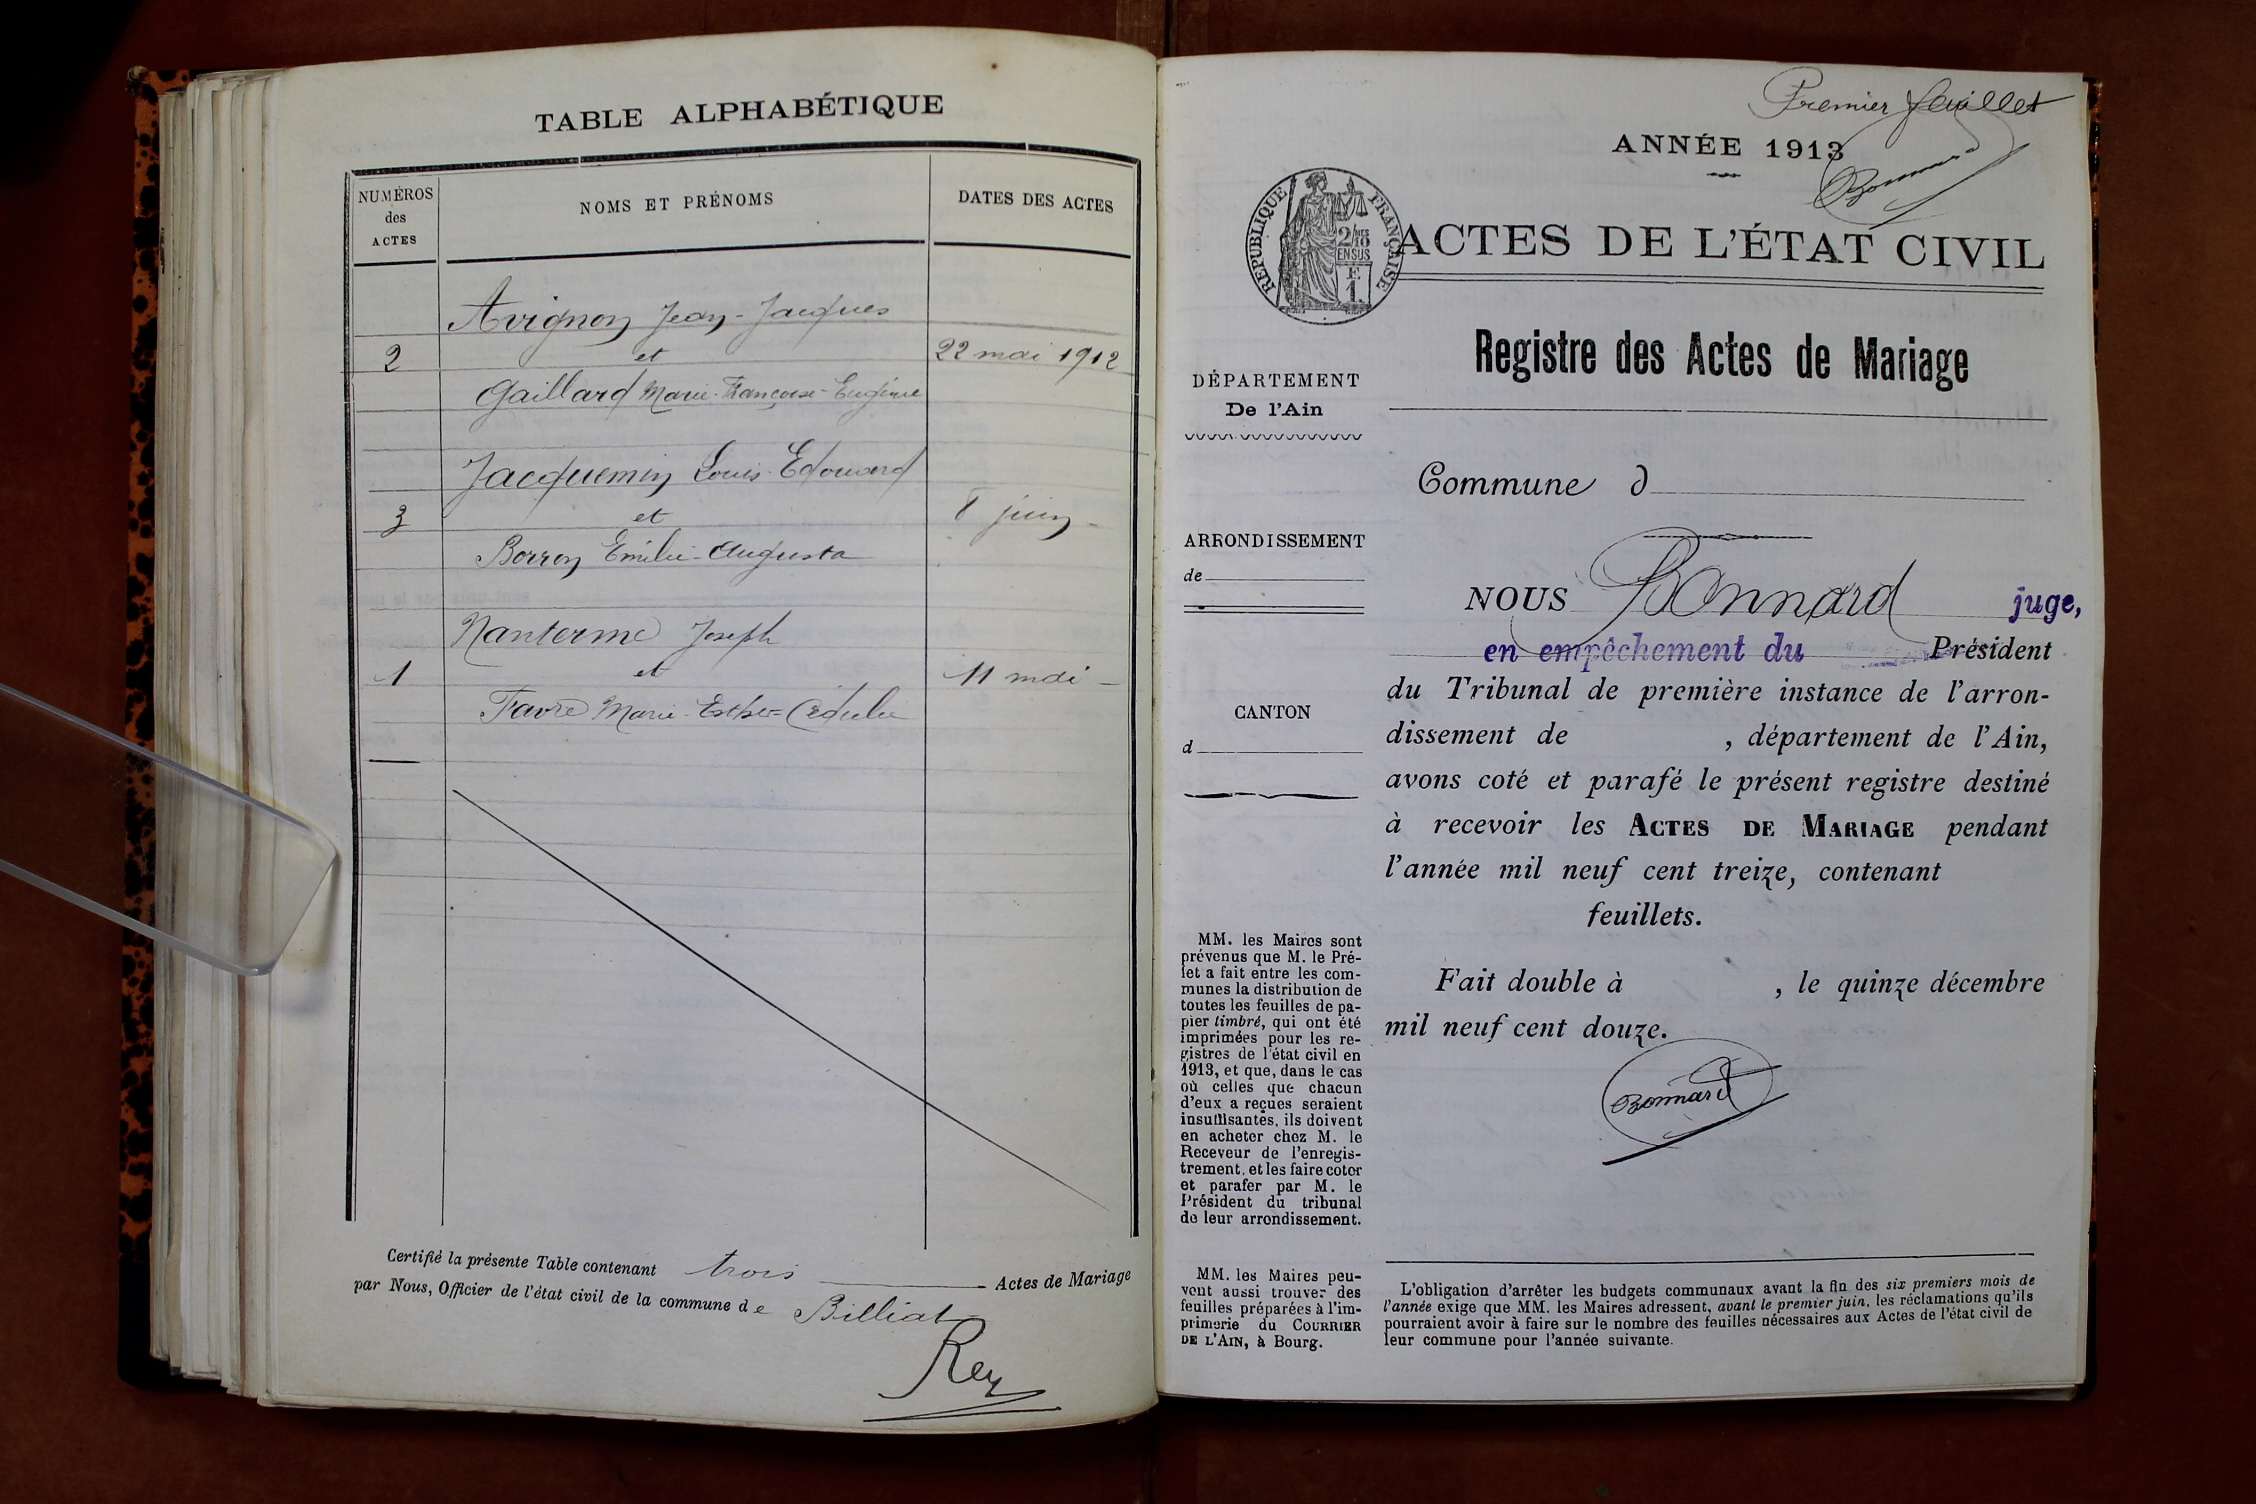 TABLE ALPHABÉTIQUE
NUMÉROS
des
ACTES
NOMS ET PRÉNOMS
DATES DES ACTES
Avignon Jean-Jacques
2 et 22 mai 1912
Gaillard Marie-Françoise-Eugénie
Jacquemin Louis-Edouard
3 et 8 juin -
Borron Emélie-Augusta
Nanterme Joseph
1 et 11 mai -
Favre Marie-Esther-Cédulie
Certifié la présente Table contenant trois Actes de Mariage
par Nous, Officier de l'état civil de la commune de Billiat
Rey
Premier feuillet
ANNÉE 1913
Bonnard
RÉPUBLIQUE FRANÇAISE
2/10MES
EN SUS
F.
1.
ACTES DE L'ÉTAT CIVIL
Registre des Actes de Mariage
DÉPARTEMENT
De l'Ain
Commune d
ARRONDISSEMENT
de
CANTON
d
NOUS Bonnard juge,
en empêchement du Président
du Tribunal de première instance de l'arron-
dissement de , département de l'Ain,
avons coté et parafé le présent registre destiné
à recevoir les ACTES DE MARIAGE pendant
l'année mil neuf cent treize, contenant
feuillets.
Fait double à , le quinze décembre
mil neuf cent douze.
Bonnard
MM. les Maires sont
prévenus que M. le Pré-
fet a fait entre les com-
munes la distribution de
toutes les feuilles de pa-
pier timbré, qui ont été
imprimées pour les re-
gistres de l'état civil en
1913, et que, dans le cas
où celles que chacun
d'eux a reçues seraient
insuffisantes, ils doivent
en acheter chez M. le
Receveur de l'enregis-
trement, et les faire coter
et parafer par M. le
Président du tribunal
de leur arrondissement.
MM. les Maires peu-
vent aussi trouver des
feuilles préparées à l'im-
primerie du COURRIER
DE L'AIN, à Bourg.
L'obligation d'arrêter les budgets communaux avant la fin des six premiers mois de
l'année exige que MM. les Maires adressent, avant le premier juin, les réclamations qu'ils
pourraient avoir à faire sur le nombre des feuilles nécessaires aux Actes de l'état civil de
leur commune pour l'année suivante.